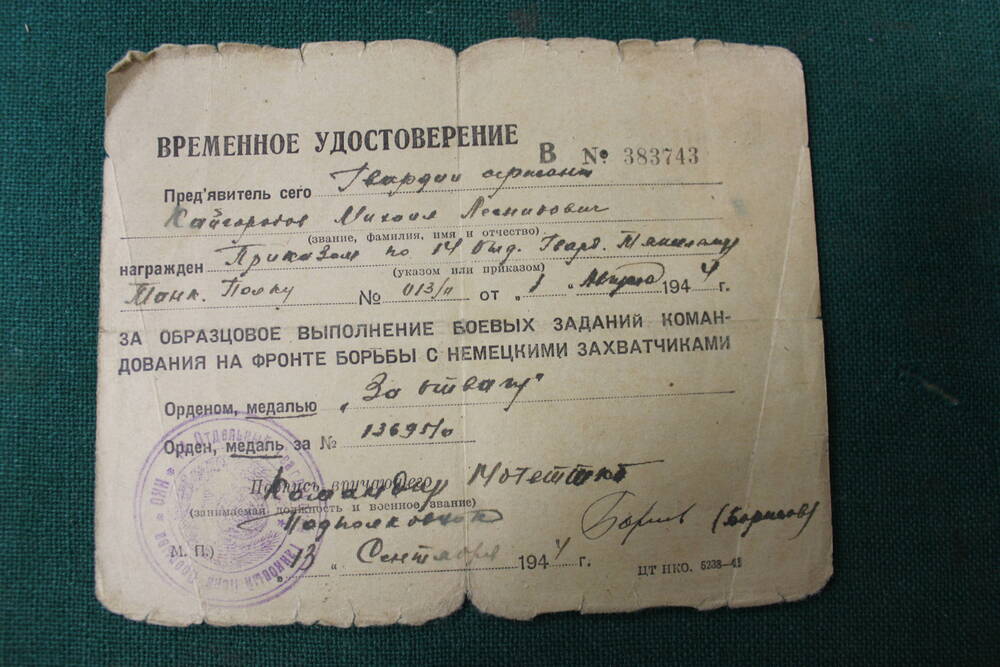 ВРЕМЕННОЕ УДОСТОВЕРЕНИЕ
В № 383743
Пред'явитель сего Гвардии сержант
Кайгородов Михаил
(звание, фамилия, имя и отчество)
награжден Приказом по 14 Отд. Гвард. Тяжелому
(указом или приказом)
Танк. Полку № 013/п от „1" Августа 1944 г.
ЗА ОБРАЗЦОВОЕ ВЫПОЛНЕНИЕ БОЕВЫХ ЗАДАНИЙ КОМАН-
ДОВАНИЯ НА ФРОНТЕ БОРЬБЫ С НЕМЕЦКИМИ ЗАХВАТЧИКАМИ
Орденом, медалью „За отвагу"
Орден, медаль за №
Подпись вручающего Командир
(занимаемая должность и военное звание)
Подполковник
(Борисов)
М. П.) „13" Сентября 1944 г.
ЦТ НКО. 5238—41